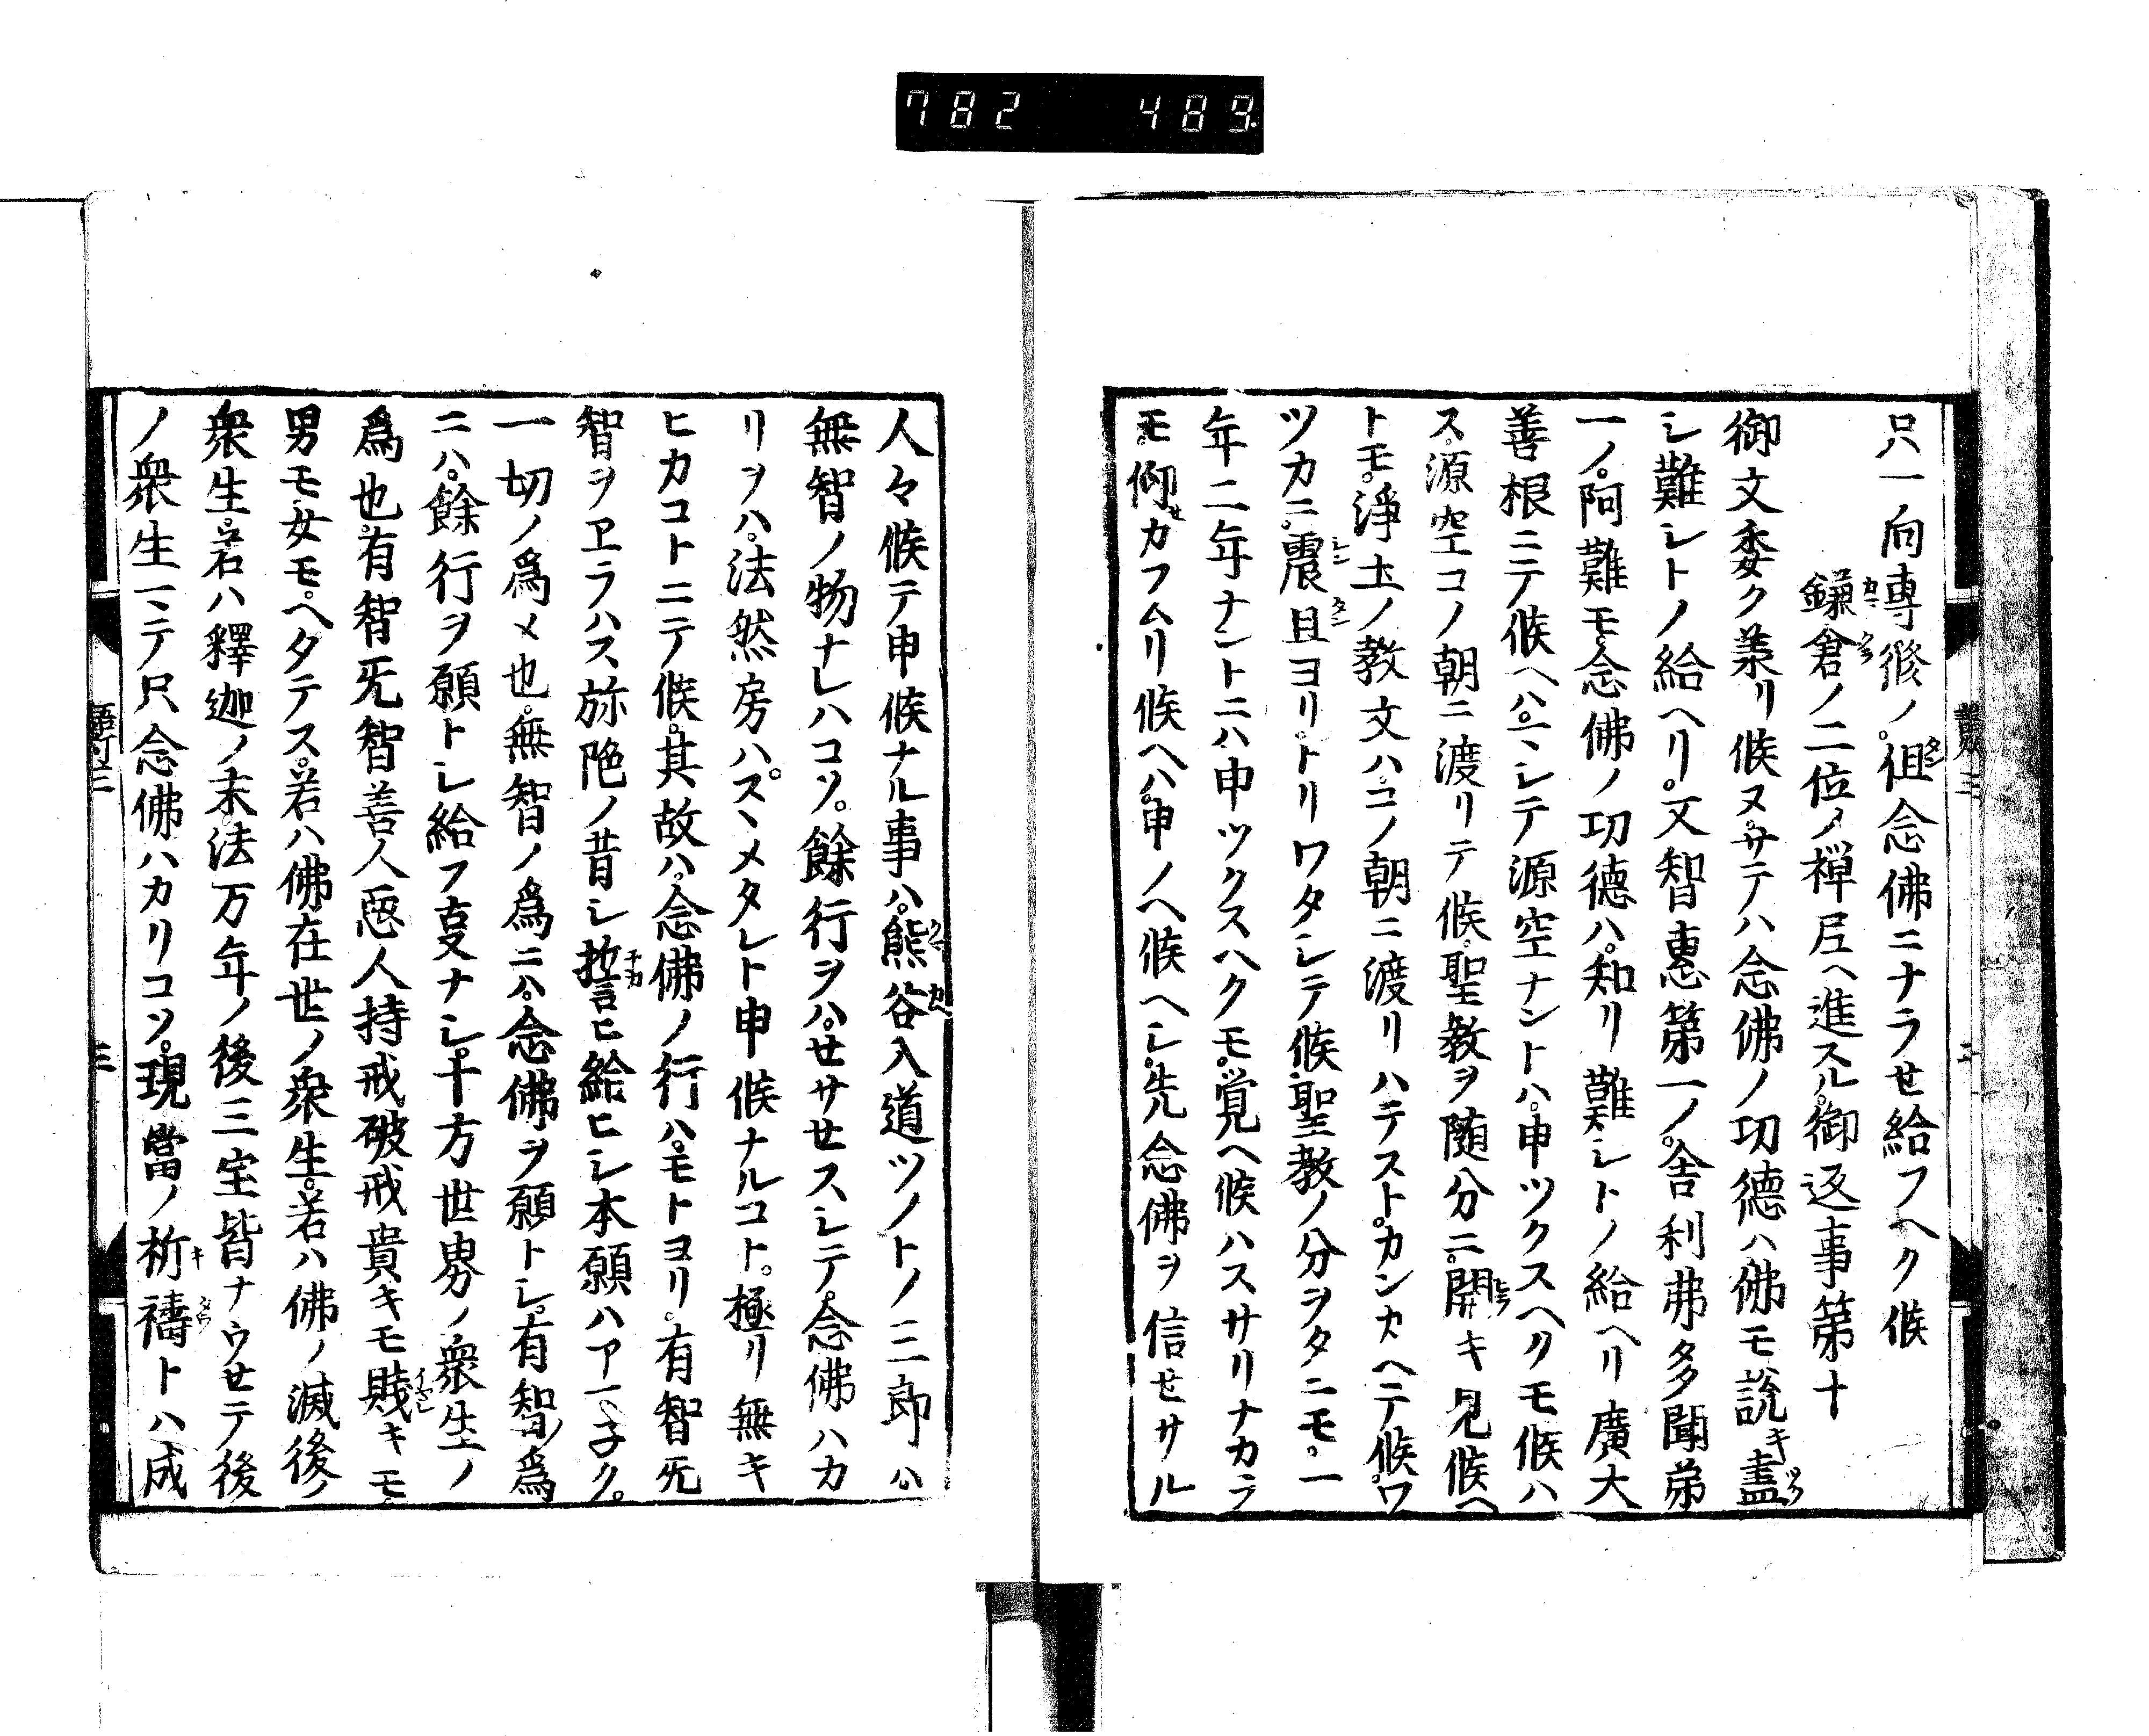 782 489
只一向專修ノ。徂念佛ニナラセ給フヘク候
鎌倉ノ二位ノ禪尼ヘ進スル。御返事第十
御文委ク羕リ候ヌ。サテハ念佛ノ功德ハ。佛モ說キ盡
シ難シトノ給ヘリ。又智惠第一ノ。舍利弗多聞弟
一ノ。阿難モ。念佛ノ功德ハ。知リ難シトノ給ヘリ廣大
善根ニテ候ヘハ。マシテ源空ナントハ。申ツクスヘクモ候ハ
ス。源空コノ朝ニ渡リテ候。聖教ヲ随分ニ。開キ見候ヘ
トモ。淨土ノ教文ハ。コノ朝ニ渡リハテストカンカヘテ候。ワ
ツカニ。震旦ヨリ。トリワタシテ候。聖教ノ分ヲタニモ。一
年二年ナントニハ。申ツクスヘクモ。覚ヘ候ハスサリナカラ
モ。仰カフムリ候ヘハ。申ノヘ候ヘシ。先念佛ヲ信セサル
人々候テ申候ナル事ハ。熊谷入道ツノトノ三郎ハ
無智ノ物ナレハコソ。餘行ヲハ。セサセスシテ。念佛ハカ
リヲハ。法然房ハ。スヽメタレト申候ナルコト。極リ無キ
ヒカコトニテ候。其故ハ。念佛ノ行ハ。モトヨリ。有智旡
智ヲヱラハス。弥陁ノ昔シ誓ヒ給ヒシ本願ハアマ子ク。
一切ノ爲メ也。無智ノ爲ニハ。念佛ヲ願トシ。有智ノ爲
ニハ。餘行ヲ願トシ給フ㕝ナシ。十方世界ノ衆生ノ
爲也。有智旡智善人惡人持戒破戒貴キモ賤キモ。
男モ女モ。ヘタテス。若ハ佛在世ノ衆生。若ハ佛ノ滅後ノ
衆生。若ハ釋迦ノ末法万年ノ後三宝皆ナウセテ後
ノ衆生マテ只念佛ハカリコソ。現當ノ祈禱トハ成